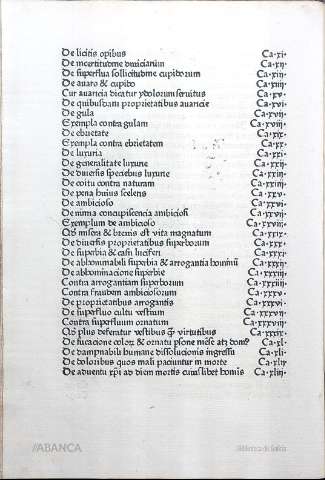 De licitis opibus Ca·xi·
De incertitudine diuiciarum Ca·xii·
De superflua sollicitudine cupidorum Ca·xiii·
De auaro & cupido Ca·xiiii·
Cur auaricia dicatur ydolorum seruitus Ca·xv·
De quibusdam proprietatibus auaricie Ca·xvi·
De gula Ca·xvii·
Exempla contra gulam Ca·xviii·
De ebrietate Ca·xix·
Exempla contra ebrietatem Ca·xx·
De luxuria Ca·xxi·
De generalitate luxurie Ca·xxii·
De diuersis speciebus luxurie Ca·xxiii·
De coitu contra naturam Ca·xxiiii·
De pena huius sceleris Ca·xxv·
De ambicioso Ca·xxvi·
De nimia concupiscencia ambiciosi Ca·xxvii·
Exemplum de ambicioso Ca·xxviii·
Qd misera & breuis est vita magnatum Ca·xxix·
De diuersis proprietatibus superborum Ca·xxx·
De superbia & casu luciferi Ca·xxxi·
De abhominabili superbia & arrogantia hominum Ca·xxxii·
De abhominacione superbie Ca·xxxiii·
Contra arrogantiam superborum Ca·xxxiiii·
Contra fraudem ambiciosorum Ca·xxxv·
De proprietatibus arrogantis Ca·xxxvi·
De superfluo cultu vestium Ca·xxxvii·
Contra superfluum ornatum Ca·xxxviii·
Qd plus defferatur vestibus q̃ virtutibus Ca·xxxix·
De fucacione & ornatu Ca·xl·
De dampnabili humane dissolucionis ingressu Ca·xli·
De doloribus quos mali paciuntur in morte Ca·xlii·
De aduentu xp̃i ad diem mortis cuiuslibet hominis Ca·xliii·
//ABANCA
Biblioteca de Galicia